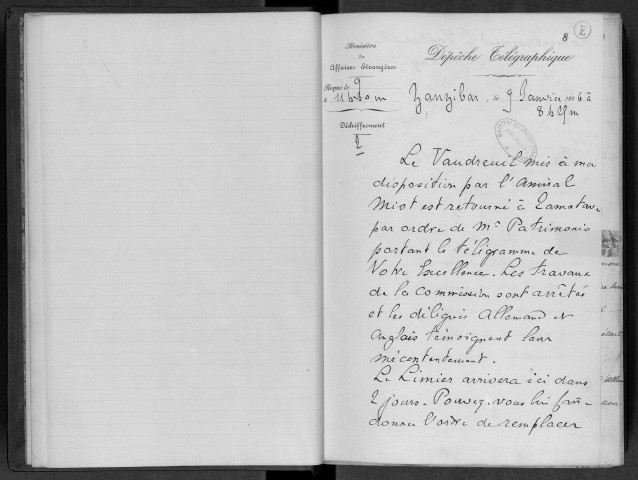 8 E
Ministère
des
Affaires Étrangères
Dépêche Télégraphique
Reçue le 9
à 11 h 40 m
Zanzibar, le 9 Janvier 1886 à
8 h 25 m
Déchiffrement
2
Le Vaudreuil mis à ma
disposition par l'Amiral
Miot est retourné à Tamatave
par ordre de Mr Patrimonio
portant le télégramme de
Votre Excellence. Les travaux
de la Commission sont arrêtés
et les délégués Allemand et
Anglais témoignent leur
mécontentement.
Le Limier arrivera ici dans
2 jours. Pouvez-vous lui faire
donner l'ordre de remplacer